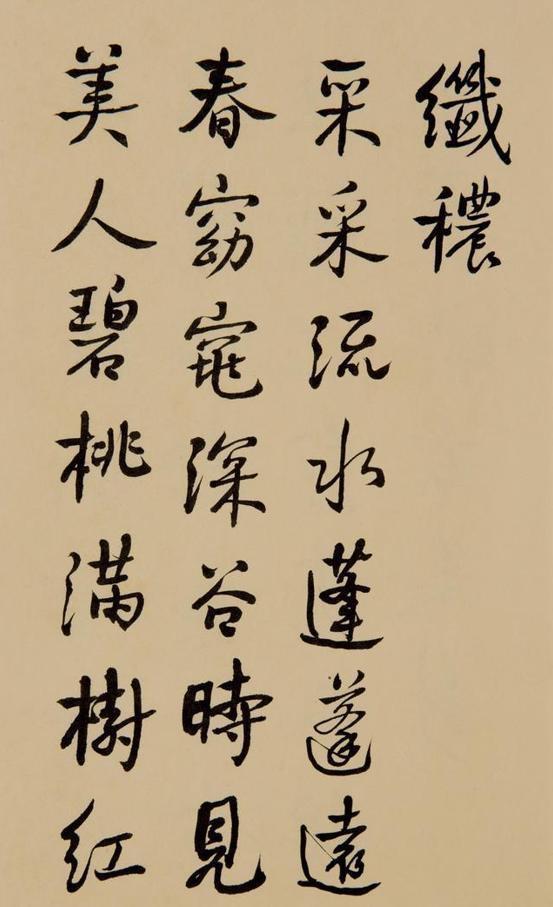 纖穠
采采流水蓬蓬遠
春窈窕深谷時見
美人碧桃滿樹紅